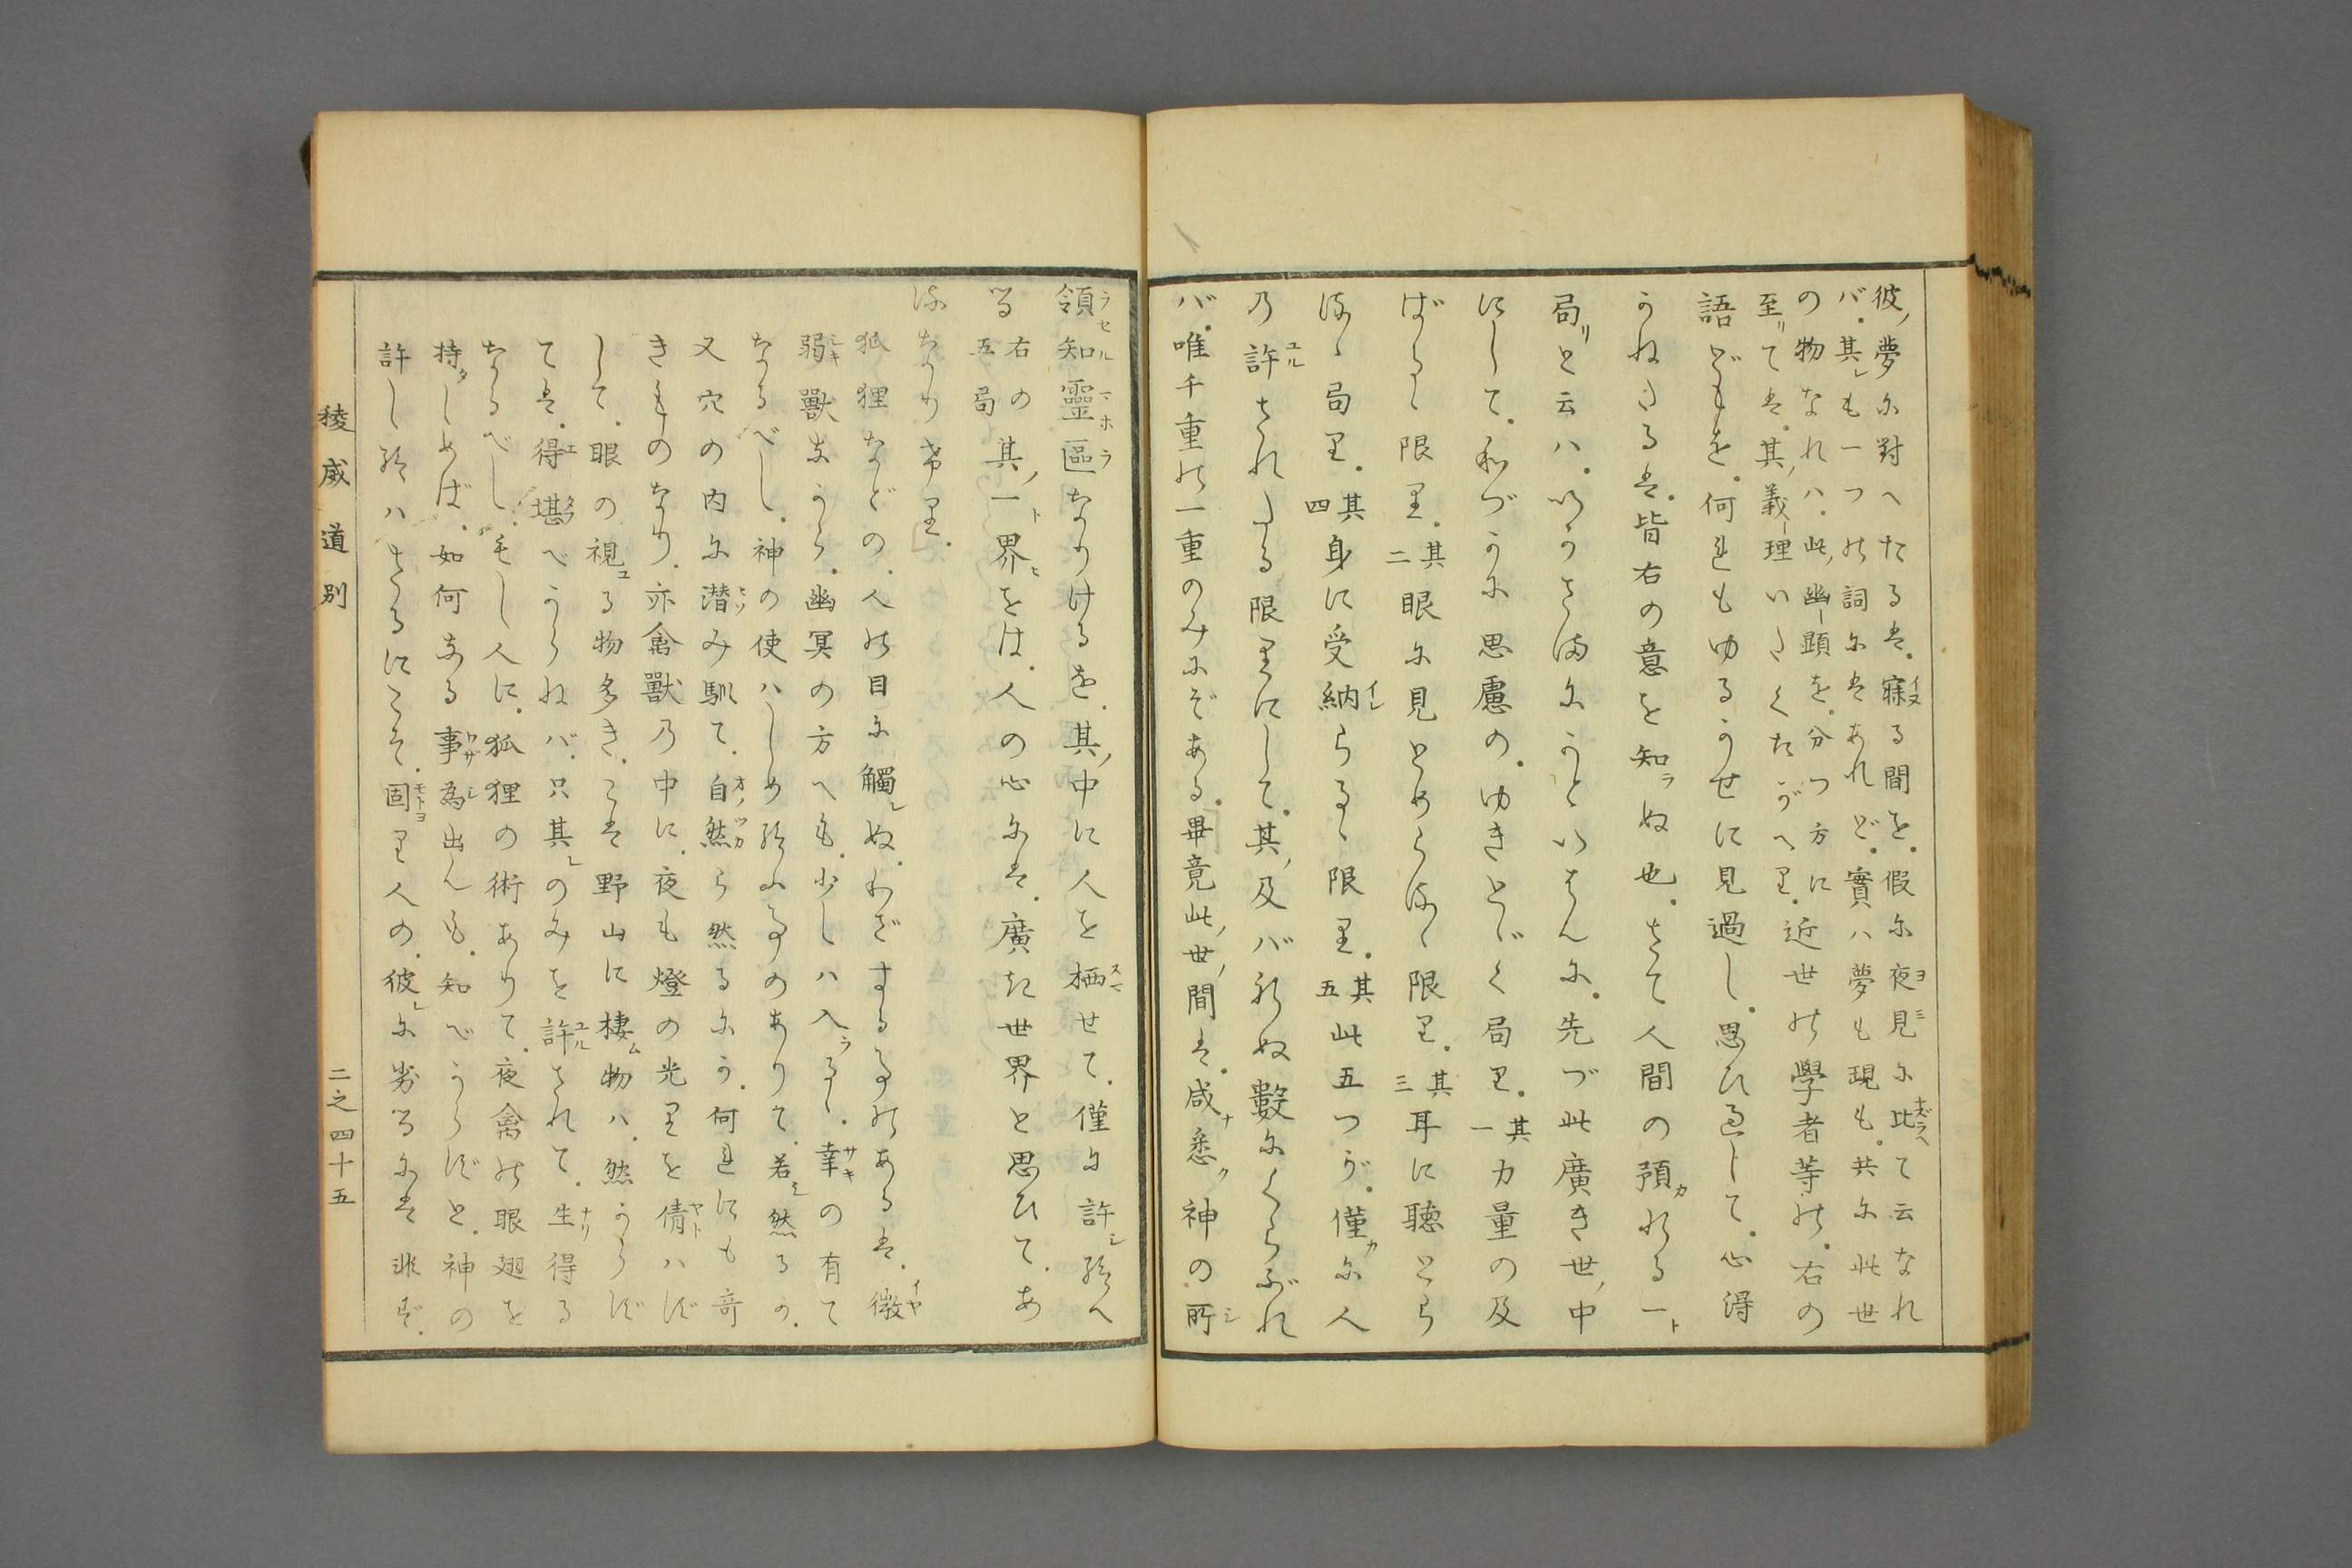 彼ノ夢に對へたるは。寐る間を。假に夜見に比て云なれ
バ。其レも一つの詞にはあれど。實ハ夢も現も。共に此世
の物なれハ。此ノ幽顯を。分つ方に近世の學者等の。右の
至リては。其ノ義理いたくたがへり。
語どもを。何れもゆるかせに見過し。思ひ過して。心得
かねたるは。皆右の意を知ラぬ也。さて人間の預カれる一ト
局リと云ハ。いかさまにかといはんに。先づ此廣き世ノ中
にして。わづかに思慮の。ゆきとゞく局り。其一力量の及
ばるゝ限り。其二眼に見とめらるゝ限り。其三耳に聴とら
るゝ局り。其四身に受納らるゝ限り。其五此五つが。僅に人
の許されたる限りにして。其ノ及バれぬ數にくらぶれ
バ。唯千重の一重のみにぞある。畢竟此ノ世ノ間は。咸悉ク神の所
領知靈區なりけるを。其ノ中に人を栖せて。僅に許シ給へ
る右の五局其ノ一ト界をは。人の心には。廣き世界と思ひて。あ
るなりけり。
狐狸などの。人の目に觸レぬ。わざするすのあるは。微
弱獸すから。幽冥の方へも。少しハ入ラるゝ。幸の有て
なるべし。神の使ハしめ給ふ事のありて。若シ然るか。
又穴の内に潜み馴て。自然ら然るにか。何れにも奇
きものなり。亦禽獸の中に。夜も燈の光りを倩ハず
して。眼の視る物多き。こは野山に棲ム物ハ。然からず
ては。得堪へからねバ。只其レのみを許されて。生得る
なるべし。もし人に。狐狸の術ありて。夜禽の眼翅を
持しめば。如何なる事為出んも。知べからずと。神の
許し給ハざるにこそ。固より人の。彼レに劣るには非ず。
稜威道別
二之四十五